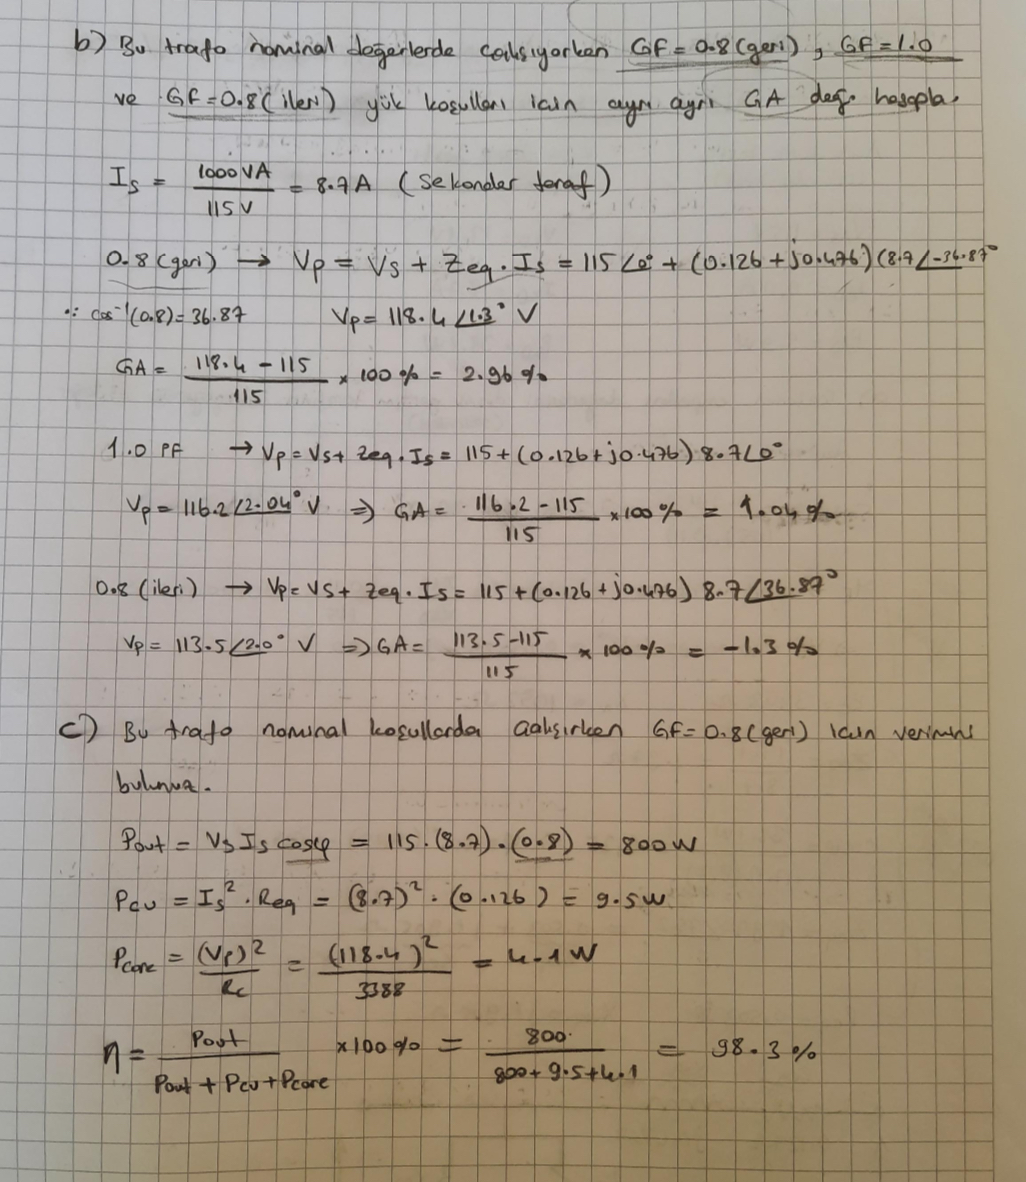 b) Bu trafo nominal değerlerde çalışıyorken GF=0.8(geri), GF=1.0
ve GF=0.8(ileri) yük koşulları için ayrı ayrı GA değ. hesapla.
I_S = 1000VA / 115V = 8.7A (Sekonder taraf)
0.8(geri) → Vp = Vs + Zeq.Is = 115∠0° + (0.126+j0.476)(8.7∠-36.87°
∵ cos⁻¹(0.8)=36.87 Vp=118.4∠1.3° V
GA = 118.4-115 / 115 × 100% = 2.96%
1.0 PF → Vp=Vs+Zeq.Is = 115+(0.126+j0.476) 8.7∠0°
Vp=116.2∠2.04° V ⇒ GA= 116.2-115 / 115 ×100% = 1.04%
0.8(ileri) → Vp=Vs+Zeq.Is= 115+(0.126+j0.476) 8.7∠36.87°
Vp= 113.5∠2.0° V ⇒GA= 113.5-115 / 115 × 100% = -1.3%
c) Bu trafo nominal koşullarda çalışırken GF=0.8(geri) için verimini
bulunuz.
Pout = Vs Is cosφ = 115.(8.7).(0.8) = 800W
Pcu = Is².Req = (8.7)².(0.126) = 9.5W
Pcore = (Vp)² / Rc = (118.4)² / 3388 = 4.1W
η = Pout / Pout + Pcu + Pcore ×100% = 800 / 800+9.5+4.1 = 98.3%